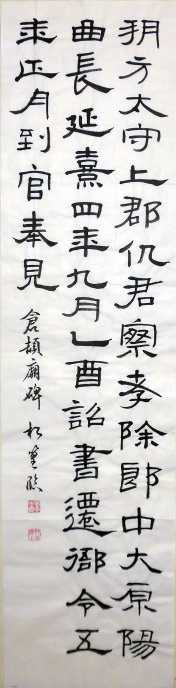 朔方太守上郡仇君察孝除郎中大原陽
曲長延熹四年九月乙酉詔書遷衙令五
年正月到官奉見
倉頡廟碑 臨